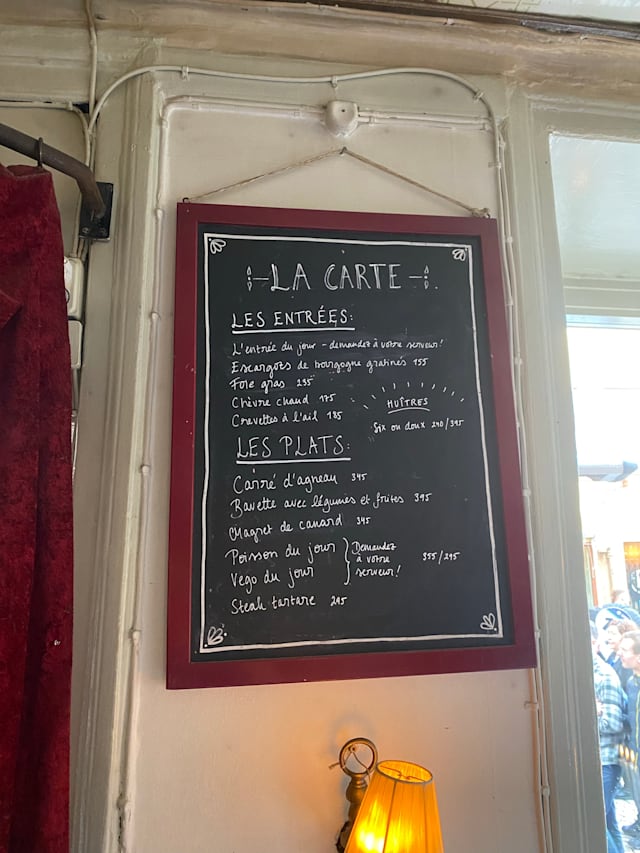 LA CARTE
LES ENTRÉES:
L'entrée du jour - demandez à votre serveur!
Escargots de bourgogne gratinés 155
Foie gras 235
Chèvre chaud 175
Crevettes à l'ail 185
HUÎTRES
Six ou doux 240/395
LES PLATS:
Carré d'agneau 345
Bavette avec légumes et frites 395
Magret de canard 345
Poisson du jour
Vego du jour
Demandez
à votre
serveur!
355/295
Steak tartare 295